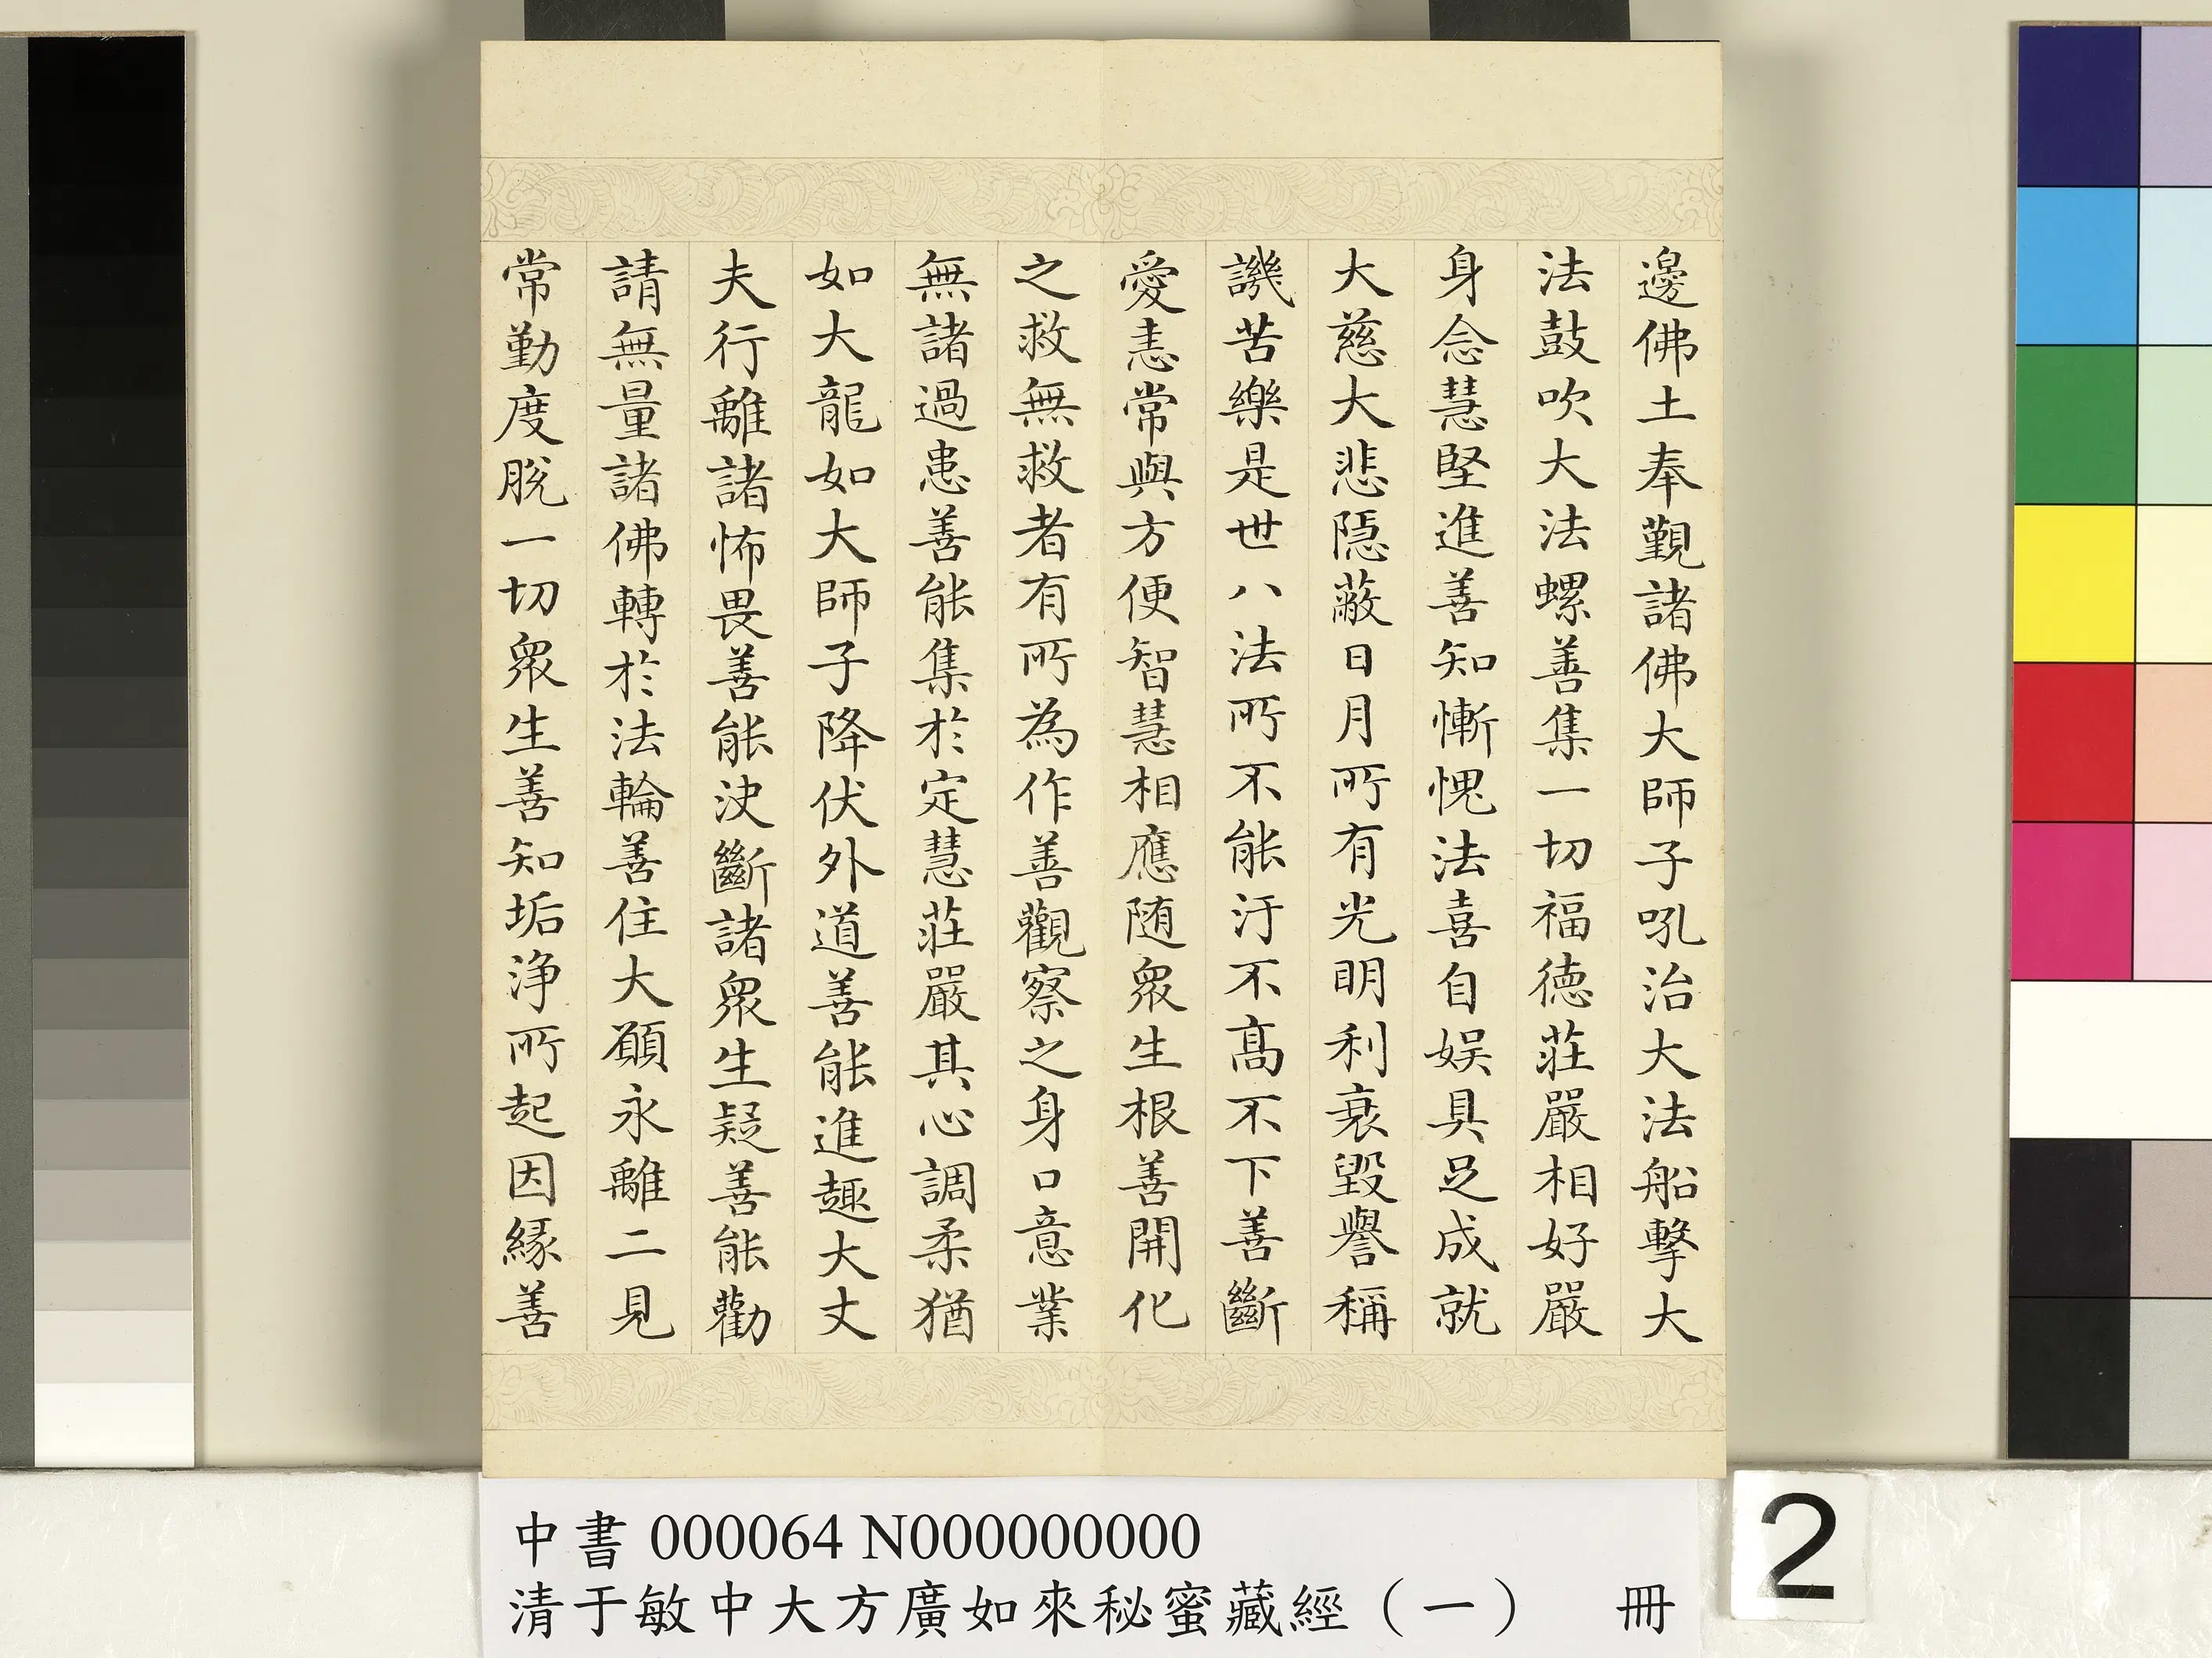 邊佛土奉覲諸佛大師子吼治大法船擊大
法鼓吹大法螺善集一切福德莊嚴相好嚴
身念慧堅進善知慚愧法喜自娛具足成就
大慈大悲隱蔽日月所有光明利衰毀譽稱
譏苦樂是世八法所不能汙不高不下善斷
愛恚常與方便智慧相應隨眾生根善開化
之救無救者有所為作善觀察之身口意業
無諸過患善能集於定慧莊嚴其心調柔猶
如大龍如大師子降伏外道善能進趣大丈
夫行離諸怖畏善能決斷諸眾生疑善能勸
請無量諸佛轉於法輪善住大願永離二見
常勤度脫一切眾生善知垢淨所起因緣善
中書 000064 N000000000
清于敏中大方廣如來秘蜜藏經（一） 冊
2